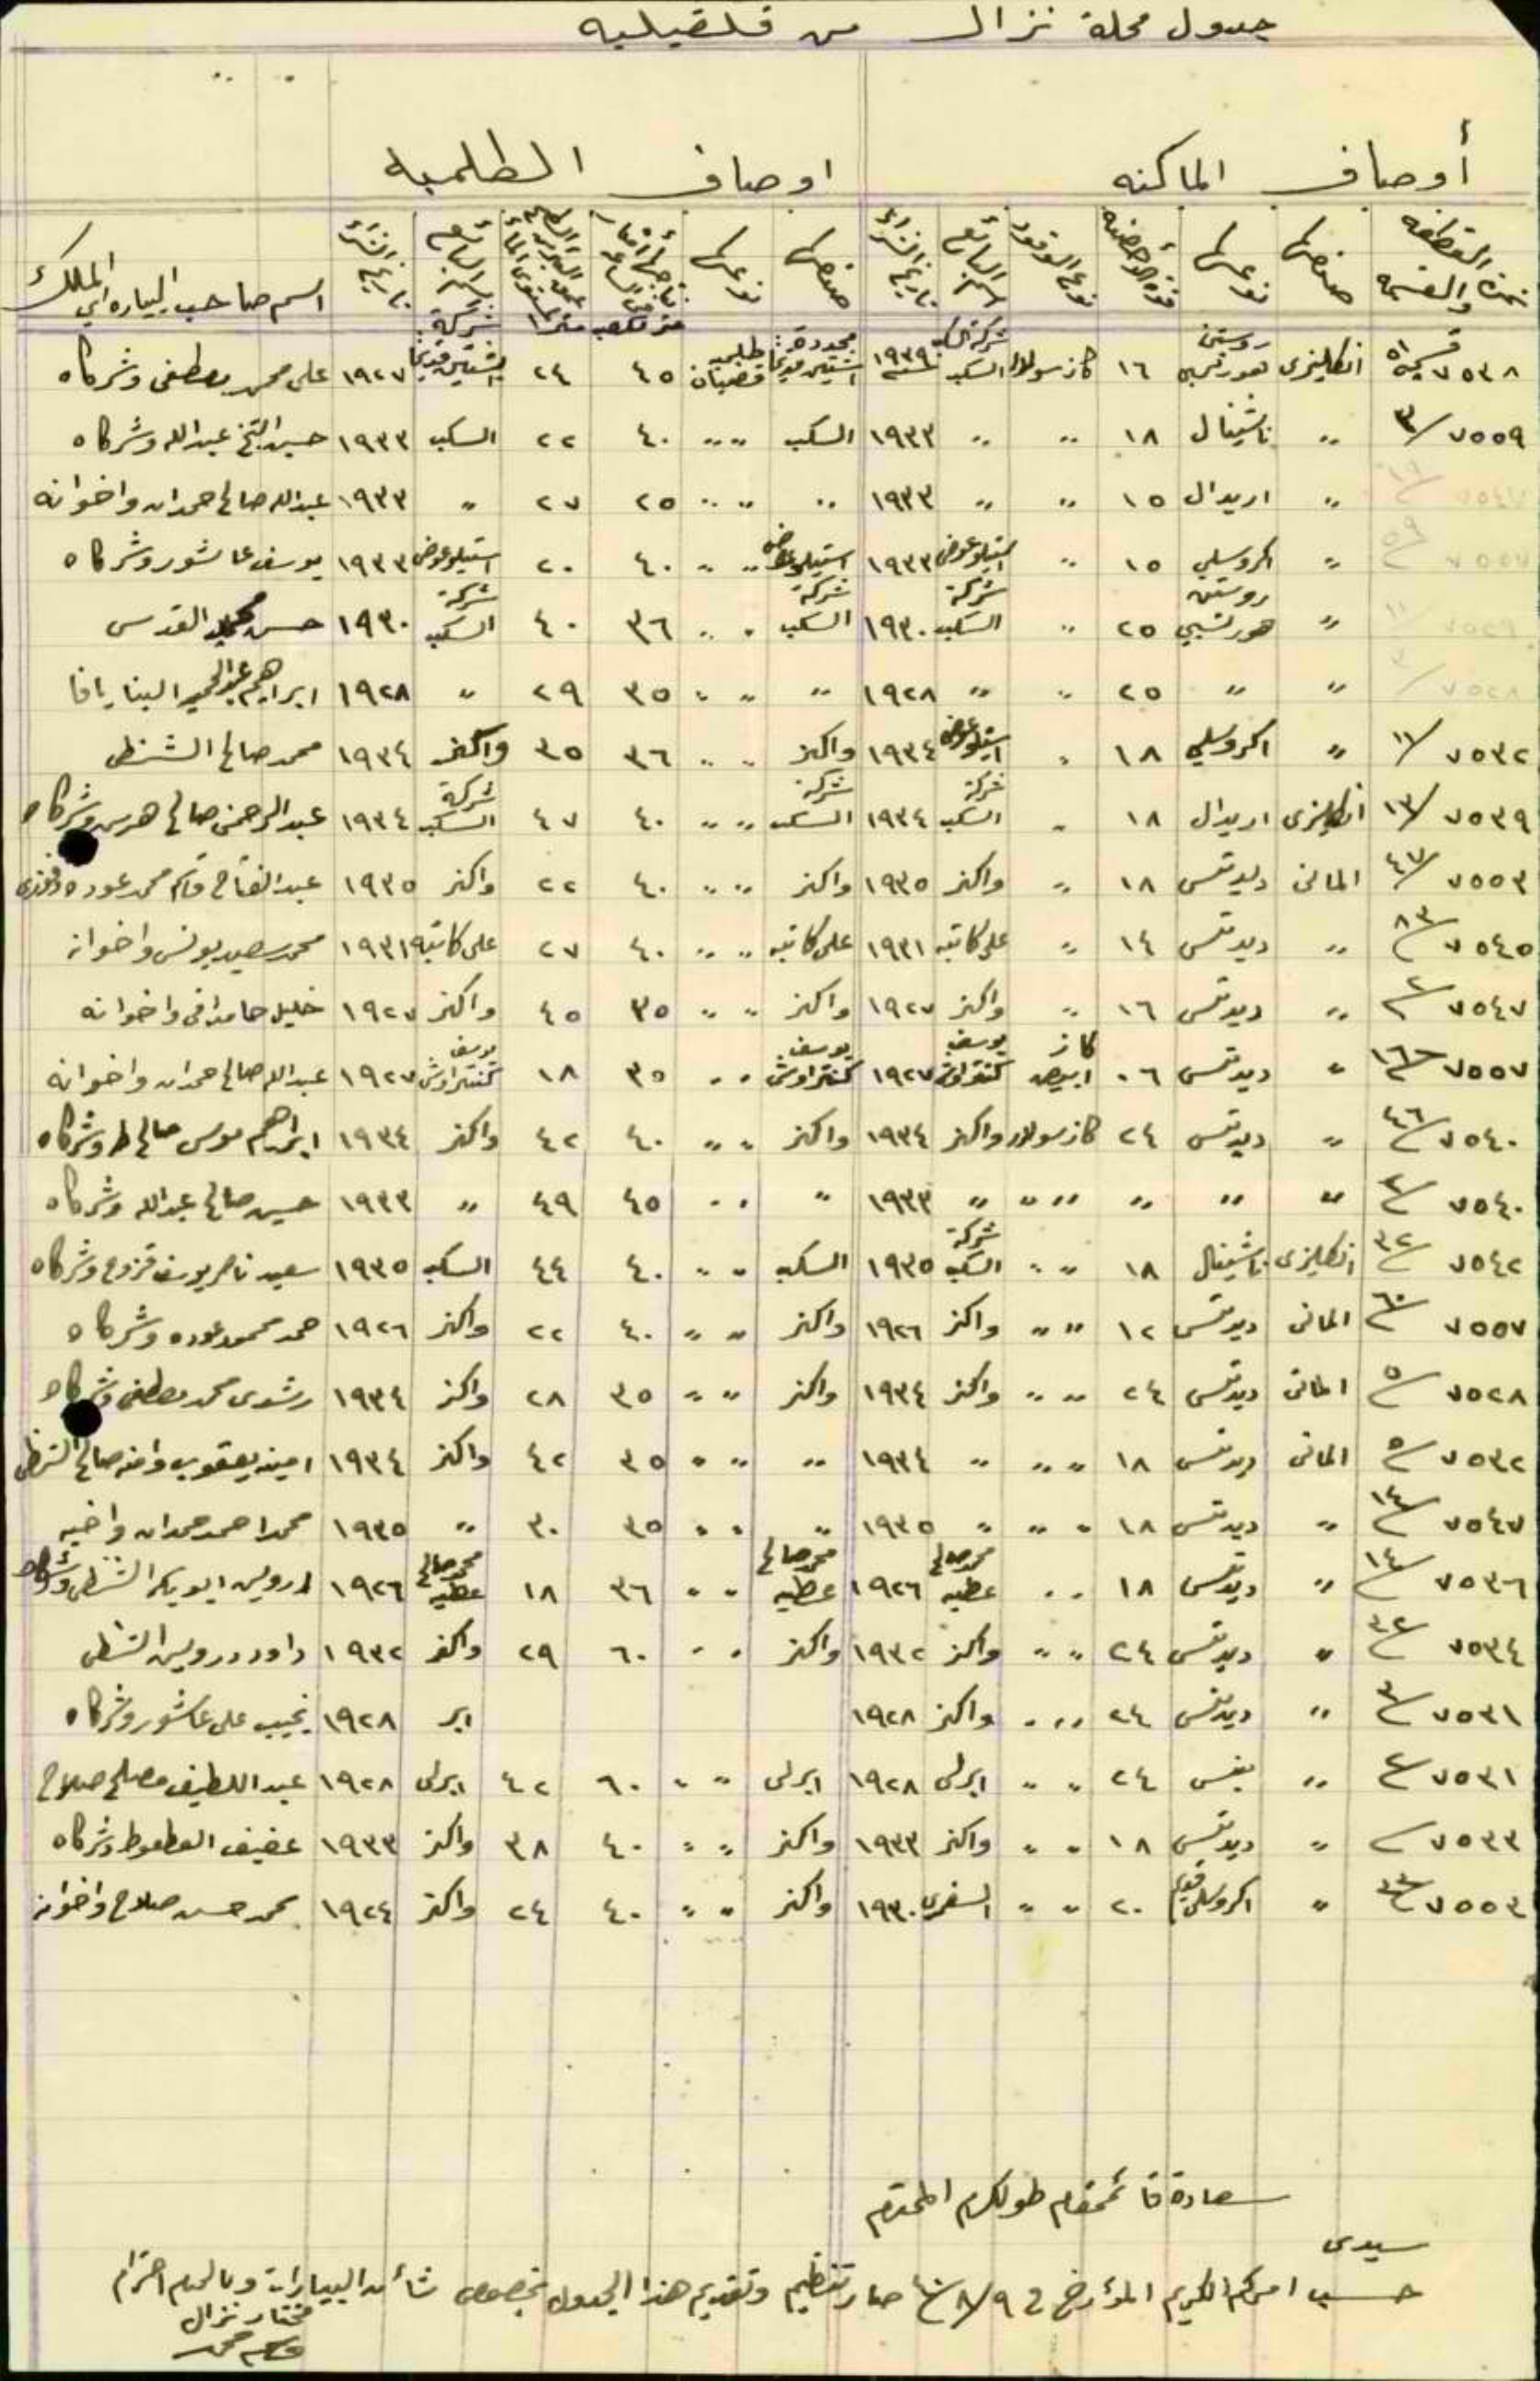 جدول محلة نزال من قلقيليه
أوصاف الماكنه اوصاف الطلمبه
نمرة القطعه والقسيمه صنعها نوعها قوة الأحصنه نوع الوقود اسم البائع تاريخ الشراء صنعها نوعها متر مكعب اسم البائع تاريخ الشراء اسم صاحب البياره اي الملاك
٧٥٣٨ قسيمة ٥١ انكليزى روستن هورنسبي ١٦ كاز سولار شركة السكب ١٩٣٩ طلمبه قضبان ٤٥ ٢٤ ١٩٢٧ على محمد مصطفى وشركاه
٧٥٥٩/٣ ״ ناشينال ١٨ ״ ״ ١٩٣٣ السكب ״ ״ ٤٠ ٢٢ السكب ١٩٣٣ حسين الشيخ عبدالله وشركاه
٧٥٤٧/١٩ ״ اريدال ١٥ ״ ״ ١٩٣٣ ״ ״ ״ ٢٥ ٢٧ ״ ١٩٣٣ عبدالله صالح حمدان واخوانه
٧٥٥٧/٥٩ ״ اكروسلي ١٥ ״ استيلوعوض ١٩٣٣ استيلوعوض ״ ״ ٤٠ ٢٠ استيلوعوض ١٩٣٣ يوسف عاشور وشركاه
٧٥٢٩/١١ ״ روستن هورنسبي ٢٥ ״ شركة السكب ١٩٣٠ شركة السكب ״ ״ ٣٦ ٤٠ شركة السكب ١٩٣٠ حسن القدسى
٧٥٢٨/٣ ״ ״ ٢٥ ״ ״ ١٩٢٨ ״ ״ ״ ٣٥ ٢٩ ״ ١٩٢٨ ابراهيم عبدالحميد البنا يافا
٧٥٣٢/١١ ״ اكروسلي ١٨ ״ استيلوعوض ١٩٣٤ واكنز ״ ״ ٣٦ ٣٥ واكنز ١٩٣٤ محمد صالح الشنطى
٧٥٣٩/١٣ انكليزى اريدال ١٨ ״ شركة السكب ١٩٣٤ شركة السكب ״ ״ ٤٠ ٤٧ شركة السكب ١٩٣٤ عبدالرحمن صالح وشركاه
٧٥٥٣/٤٧ المانى ديدتس ١٨ ״ واكنز ١٩٣٥ واكنز ״ ״ ٤٠ ٢٢ واكنز ١٩٣٥ عبدالفتاح قاسم محمد عوده
٧٥٤٥/٨٣ ״ ديدتس ١٤ ״ على كاتبه ١٩٣١ على كاتبه ״ ״ ٤٠ ٢٧ على كاتبه ١٩٣١ محمد سعيد يونس واخوانه
٧٥٤٧/٢ ״ ديدتس ١٦ ״ واكنز ١٩٢٧ واكنز ״ ״ ٣٥ ٤٥ واكنز ١٩٢٧ خليل واخوانه
٧٥٥٧/١٦ ״ ديدتس ٠٦ كاز ابيض يوسف كنتراوش ١٩٢٧ يوسف كنتراوش ״ ״ ٣٥ ١٨ يوسف كنتراوش ١٩٢٧ عبدالله صالح حمدان واخوانه
٧٥٤٠/٤٦ ״ ديدتس ٢٤ كاز سولار واكنز ١٩٣٤ واكنز ״ ״ ٤٠ ٤٢ واكنز ١٩٣٤ ابراهيم موسى صالح وشركاه
٧٥٤٠/٢ ״ ״ ״ ״ ״ ״ ١٩٣٣ ״ ״ ״ ٤٥ ٤٩ ״ ١٩٣٣ حسين صالح عبدالله وشركاه
٧٥٤٢/٣٢ انكليزى ناشينال ١٨ ״ ״ شركة السكب ١٩٣٥ السكب ״ ״ ٤٠ ٤٤ السكب ١٩٣٥ سعيد ناصر يوسف قزوح وشركاه
٧٥٥٧/٦٠ المانى ديدتس ١٢ ״ ״ واكنز ١٩٢٦ واكنز ״ ״ ٤٠ ٢٢ واكنز ١٩٢٦ حمد محمود عوده وشركاه
٧٥٢٨/٥ المانى ديدتس ٢٤ ״ ״ واكنز ١٩٣٤ واكنز ״ ״ ٣٥ ٢٨ واكنز ١٩٣٤ رشدى محمد مصطفى وشركاه
٧٥٣٢/٥ المانى ديدتس ١٨ ״ ״ ״ ١٩٣٤ ״ ״ ״ ٣٥ ٤٢ واكنز ١٩٣٤ امينه يعقوب وامنه صالح الشنطى
٧٥٤٧/١٤ ״ ديدتس ١٨ ״ ״ ״ ١٩٣٥ ״ ״ ״ ٣٥ ٣٠ ״ ١٩٣٥ محمد احمد حمدان واخيه
٧٥٣٦/١٤ ״ ديدتس ١٨ ״ ״ محمد صالح عطيه ١٩٢٦ محمد صالح عطيه ״ ״ ٣٦ ١٨ محمد صالح عطيه ١٩٢٦ ابوبكر الشنطى وشركاه
٧٥٣٤/٣٢ ״ ديدتس ٢٤ ״ ״ واكنز ١٩٣٢ واكنز ״ ״ ٦٠ ٢٩ واكنز ١٩٣٢ داود درويش الشنطى
٧٥٣١/٣ ״ ديدتس ٢٤ ״ ״ واكنز ١٩٢٨ ابر ١٩٢٨ نجيب على عاشور وشركاه
٧٥٣١/٤ ״ بنس ٢٤ ״ ״ ابرلى ١٩٢٨ ابرلى ״ ״ ٦٠ ٤٢ ابرلى ١٩٢٨ عبداللطيف مصلح صلاح
٧٥٣٣/ ״ ديدتس ١٨ ״ ״ واكنز ١٩٣٣ واكنز ״ ״ ٤٠ ٣٨ واكنز ١٩٣٣ عفيف العطعوط وشركاه
٧٥٥٣/٣٣ ״ اكروسلى قديم ٢٠ ״ ״ السفرى ١٩٣٠ واكنز ״ ״ ٤٠ ٢٤ واكنز ١٩٢٤ محمد حسن صلاح واخوانه
سعادة قائمقام طولكرم المحترم
سيدى
حسب امركم الكريم المؤرخ في ٩/٨/٤٠ صار تنظيم وتقديم هذا الجدول بخصوص البيارات احترام
مختار نزال